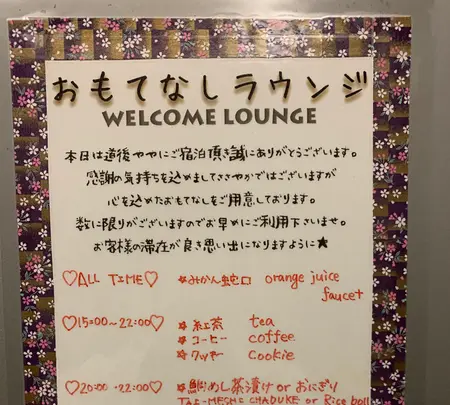 おもてなしラウンジ
WELCOME LOUNGE
本日は道後ややにご宿泊頂き誠にありがとうございます。
感謝の気持ちを込めましてささやかではございますが
心を込めたおもてなしをご用意しております。
数に限りがございますのでお早めにご利用下さいませ。
お客様の滞在が良き思い出になりますように★
♡ALL TIME♡ ★みかん蛇口 orange juice
faucet
♡15:00〜22:00♡ ★紅茶 tea
★コーヒー coffee
★クッキー cookie
♡20:00〜22:00♡ ★鯛めし茶漬け or おにぎり
TAI-MESHI CHADUKE or Rice ball